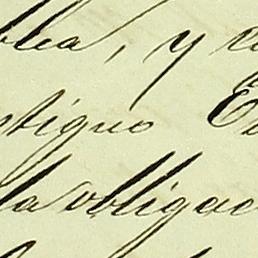 blea, y
ntiguo E
la obligac